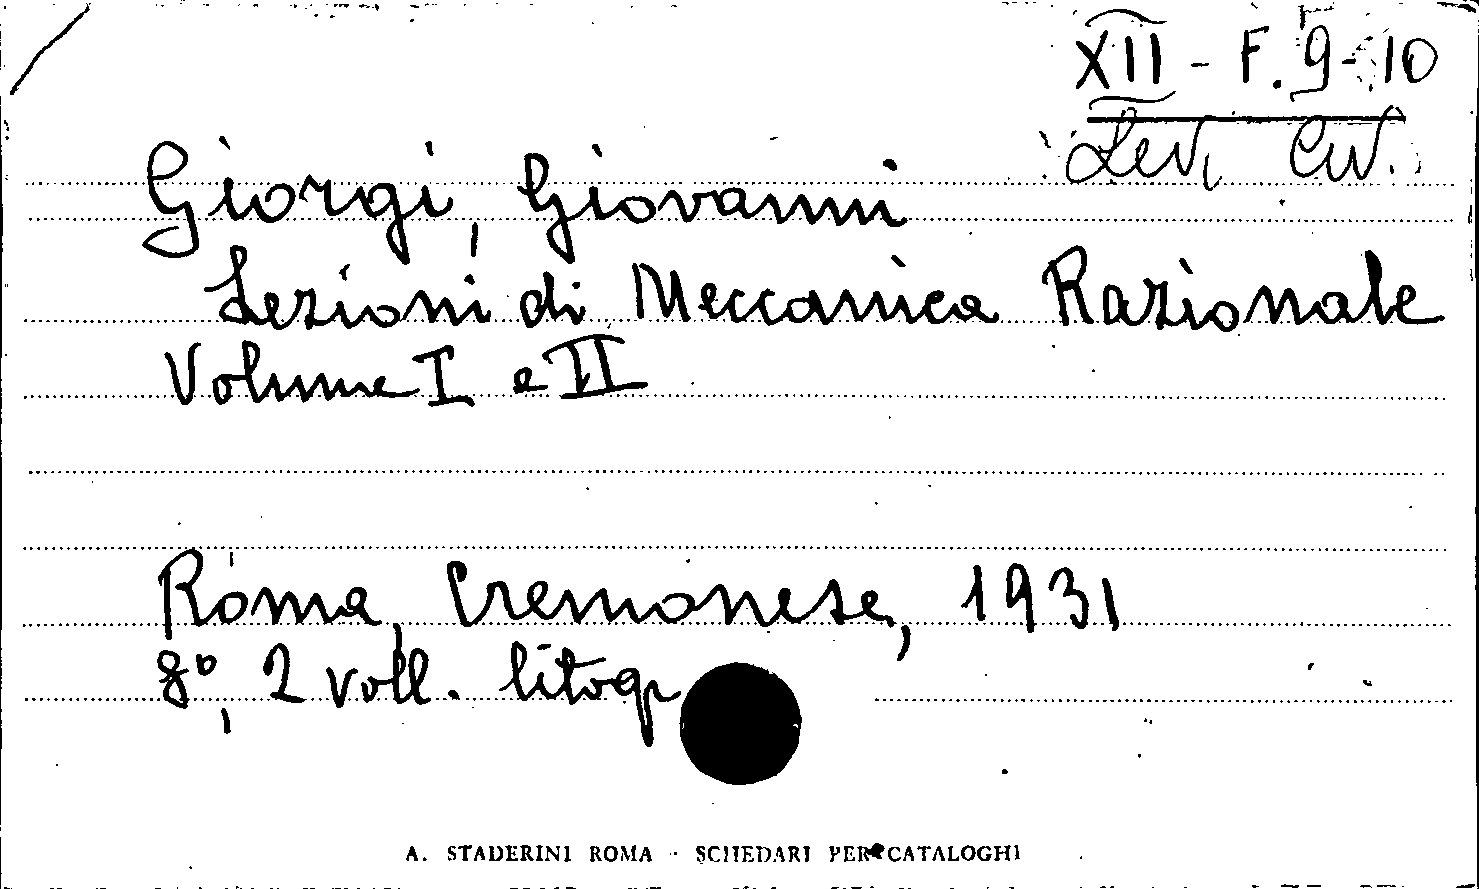 XII - F. 9-10
Lev. Civ.
Giorgi, Giovanni
Lezioni di Meccanica Razionale
Volume I e II
Roma, Cremonese, 1931
8°, 2 voll. litogr
A. STADERINI ROMA - SCHEDARI PER CATALOGHI